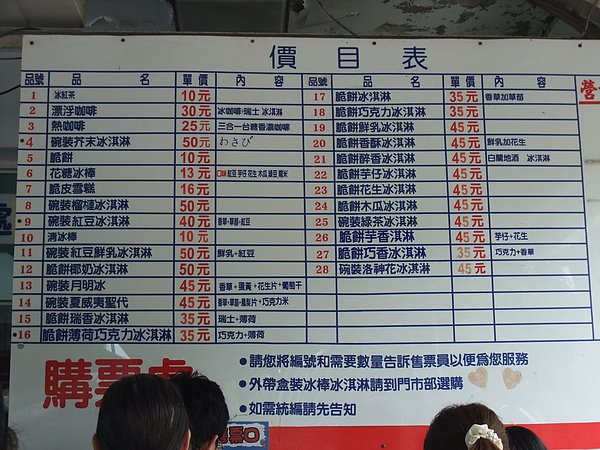 價目表
品號 品名 單價 內容
1 冰紅茶 10元
2 漂浮咖啡 30元 冰咖啡+瑞士 冰淇淋
3 熱咖啡 25元 三合一台糖香濃咖啡
4 碗裝芥末冰淇淋 50元 わさび
5 脆餅 10元
6 花糖冰棒 13元 口味 紅豆 芋仔 花生 木瓜 綠豆 糯米
7 脆皮雪糕 16元
8 碗裝榴槤冰淇淋 50元
9 碗裝紅豆冰淇淋 40元 香草+草莓+紅豆
10 清冰棒 10元
11 碗裝紅豆鮮乳冰淇淋 50元 鮮乳+紅豆
12 脆餅椰奶冰淇淋 50元
13 碗裝月明冰 45元 香草+蛋黃+花生片+葡萄干
14 碗裝夏威夷聖代 45元 香草+草莓+鳳梨片+巧克力米
15 脆餅瑞香冰淇淋 35元 瑞士+薄荷
16 脆餅薄荷巧克力冰淇淋 35元 巧克力+薄荷
品號 品名 單價 內容
17 脆餅冰淇淋 35元 香草加草莓
18 脆餅巧克力冰淇淋 35元
19 脆餅鮮乳冰淇淋 45元
20 脆餅香酥冰淇淋 45元 鮮乳加花生
21 脆餅醉香冰淇淋 45元 白蘭地酒 冰淇淋
22 脆餅芋仔冰淇淋 45元
23 脆餅花生冰淇淋 45元
24 脆餅木瓜冰淇淋 45元
25 碗裝綠茶冰淇淋 45元
26 脆餅芋香淇淋 45元 芋仔+花生
27 脆餅巧香冰淇淋 35元 巧克力+香草
28 碗裝洛神花冰淇淋 45元
營
購票處
•請您將編號和需要數量告訴售票員以便為您服務
•外帶盒裝冰棒冰淇淋請到門市部選購
•如需統編請先告知
票口